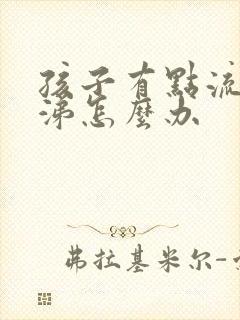 孩子有點流
涕怎麼办
弗拉基米尔-